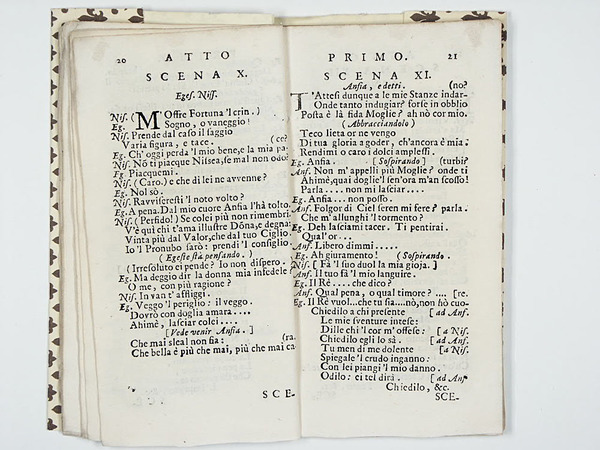 20 ATTO
SCENA X.
Eges. Niss.
Nis. ( M'Offre Fortuna 'l crin. )
Eg. ( Sogno, o vaneggio!
Nis. Prende dal caso il saggio
Varia figura, e tace. (ce?
Eg. Ch'oggi perda 'l mio bene, e la mia pa-
Nis. Nō ti piacque Nissea, se mal non odo?
Eg. Piacquemi.
Nis. (Caro.) e che di lei ne avvenne?
Eg. Nol sò.
Nis. Ravviseresti 'l noto volto?
Eg. A pena. Dal mio cuore Ansia l'hà tolto.
Nis. (Perfido!) Se colei più non rimembri,
V'è quì chi t'ama illustre Dōna, e degna:
Vinta più dal Valor, che dal tuo Ciglio.
Io 'l Pronubo sarò: prendi 'l consiglio.
( Egeste stà pensando. )
( Irresoluto ei pende? Io non dispero.
Eg. Ma deggio dir la donna mia infedele?
O me, con più ragione?
Nis. In van t'affliggi.
Eg. Veggo 'l periglio: il veggo.
Dovrò con doglia amara....
Ahimè, lasciar colei....
[ Vede venir Ansia. ]
Che mai sleal non fia: (ra.
Che bella è più che mai, più che mai ca-
SCE-
PRIMO. 21
SCENA XI.
Ansia, e detti. (no?
T'Attesi dunque a le mie Stanze indar-
Onde tanto indugiar? forse in obblio
Posta è là fida Moglie? ah nò cor mio.
( Abbracciandolo )
Teco lieta or ne vengo
Di tua gloria a goder, ch'ancora è mia.
Rendimi o caro i dolci amplessi.
Eg. Ansia. [ Sospirando ] (turbi?
Ans. Non m'appelli più Moglie? onde ti
Ahimè, quai doglie 'l sen'ora m'an scosso!
Parla.... non mi lasciar....
Eg. Ansia... non posso.
Ans. Folgor di Ciel seren mi fere? parla.
Che m'allunghi 'l tormento?
Eg. Deh lasciami tacer. Ti pentirai.
Qual'or...
Ans. Libero dimmi.....
Eg. Ah giuramento! (Sospirando.
Nis. [ Fà 'l suo duol la mia gioja. ]
Ans. Il tuo fà 'l mio languire.
Eg. Il Rè.... che dico?
Ans. Qual pena, o qual timore? .... [re.
Eg. Il Rè vuol...che tu sia...nò, non hò cuo-
Chiedilo a chi presente [ ad Ans.
Le mie sventure intese:
Dille chi 'l cor m'offese: [ a Nis.
Chiedilo egli lo sà. [ ad Ans.
Tu men di me dolente [ a Nis.
Spiegale 'l crudo inganno:
Con lei piangi 'l mio danno.
Odilo: ei tel dirà. [ ad Ans
Chiedilo, &c.
SCE-